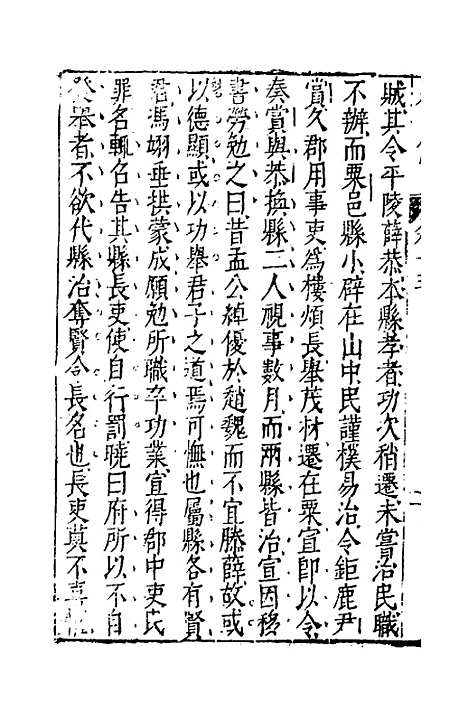 賊其令平陵薛恭本縣孝者功次稍遷未嘗治民職
不辦而粟邑縣小辟在山中民謹樸易治令鉅鹿尹
賞久郡用事吏為樓煩長舉茂材遷在粟宣卽以令
奏賞與恭換縣二人視事數月而兩縣皆治宣因移
書勞勉之曰昔孟公綽優於趙魏而不宜滕薛故或
以德顯或以功舉君子之道焉可憮也屬縣各有賢
君馮翊垂拱蒙成願勉所職卒功業宣得郡中吏民
罪名輒召告其縣長吏使自行罰曉曰府所以不自
發舉者不欲代縣治奪賢令長名也長吏莫不喜